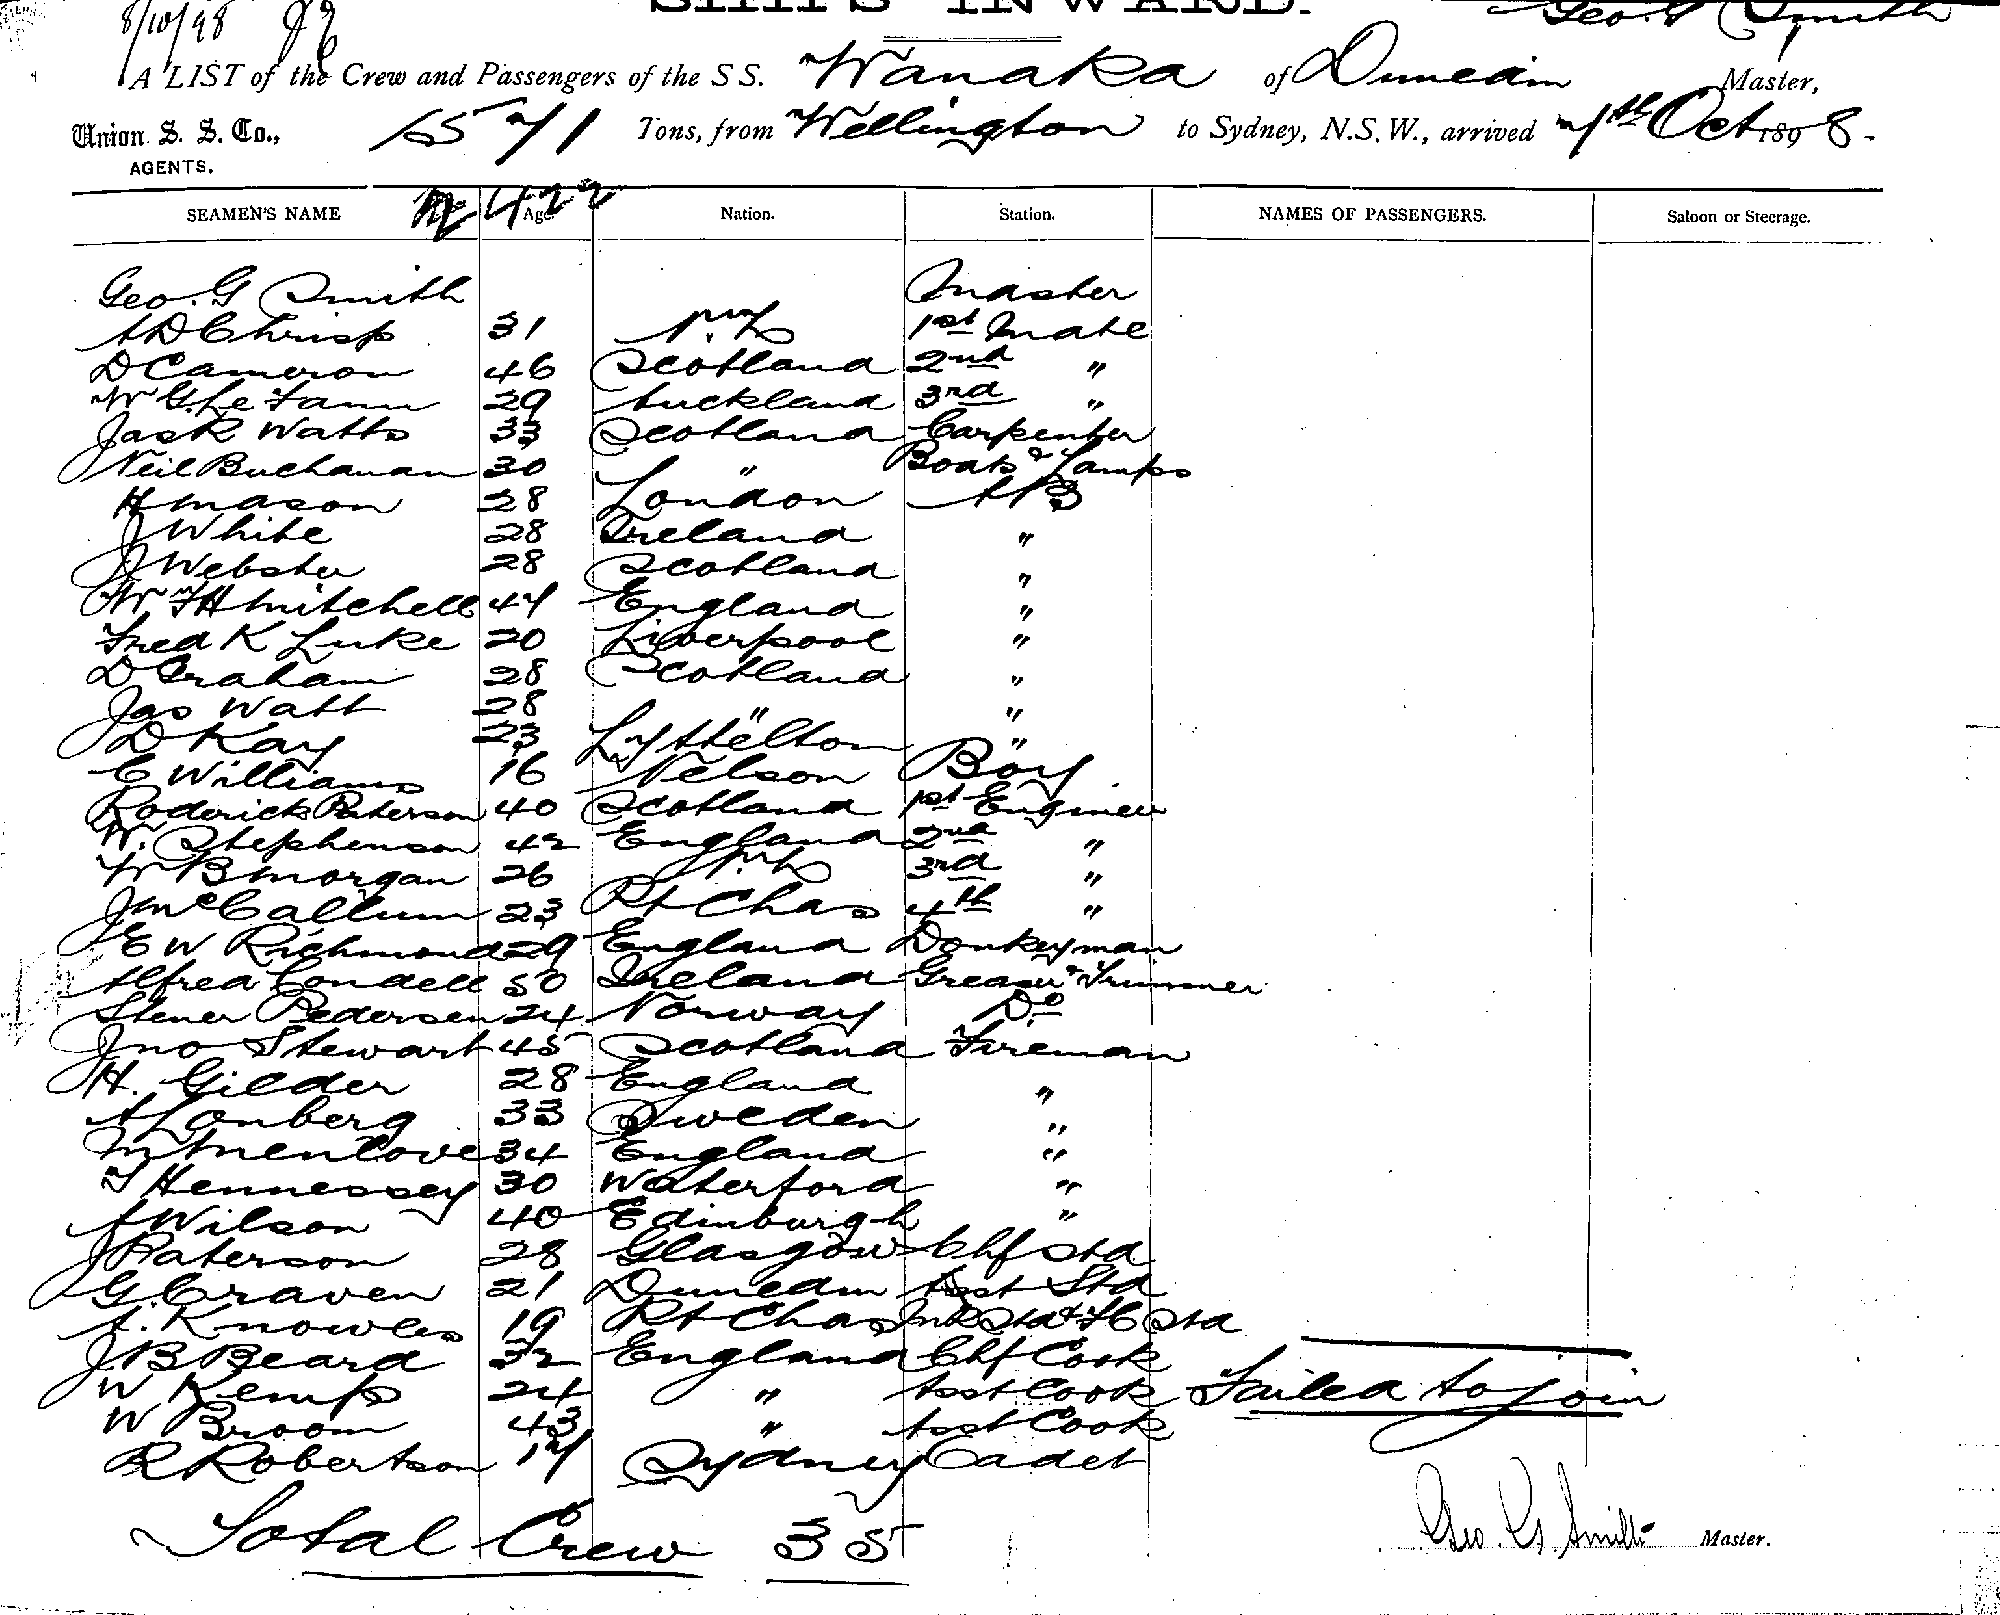 SHIPS INWARD.
8/10/98
Geo. G Smith
A LIST of the Crew and Passengers of the S S. Wanaka of Dunedin Master,
Union S. S. Co., 1571 Tons, from Wellington to Sydney, N.S.W., arrived 7th Oct 1898.
AGENTS.
422
SEAMEN'S NAME Age Nation. Station. NAMES OF PASSENGERS. Saloon or Steerage.
Geo. G Smith Master
A D Chrisp 31 N.Z 1st Mate
D Cameron 46 Scotland 2nd "
W G Le Fanu 29 Auckland 3rd "
Jack Watts 33 Scotland Carpenter
Neil Buchanan 30 " Boats & Lamps
H Mason 28 London AB
J White 28 Ireland "
J Webster 28 Scotland "
W F H Mitchell 47 England "
Fred K Luke 20 Liverpool "
D Graham 28 Scotland "
Jas Watt 28 " "
D Kay 23 Lyttelton "
C Williams 16 Nelson Boy
Roderick Paterson 40 Scotland 1st Engineer
W. Stephenson 42 England 2nd "
W B Morgan 26 N.Z 3rd "
J McCallum 23 Pt Chas 4th "
E W Richmond 29 England Donkeyman
Alfred Condell 50 Ireland Greaser & Trimmer
Stener Pedersen 24 Norway Do
Jno Stewart 45 Scotland Fireman
H. Gilder 28 England "
A Lonberg 33 Sweden "
M Menlove 34 England "
T Hennessey 30 Waterford "
A Wilson 40 Edinburgh "
J Paterson 28 Glasgow Chf Std
G. Craven 21 Dunedin Asst Std
A. Knowles 19 Pt Chas Std & F C Std
J B Beard 32 England Chf Cook
W Kemp 24 " Asst Cook Failed to join
W Broom 43 " Asst Cook
R Robertson 17 Sydney Cadet
Total Crew 35
Geo. G. Smith Master.